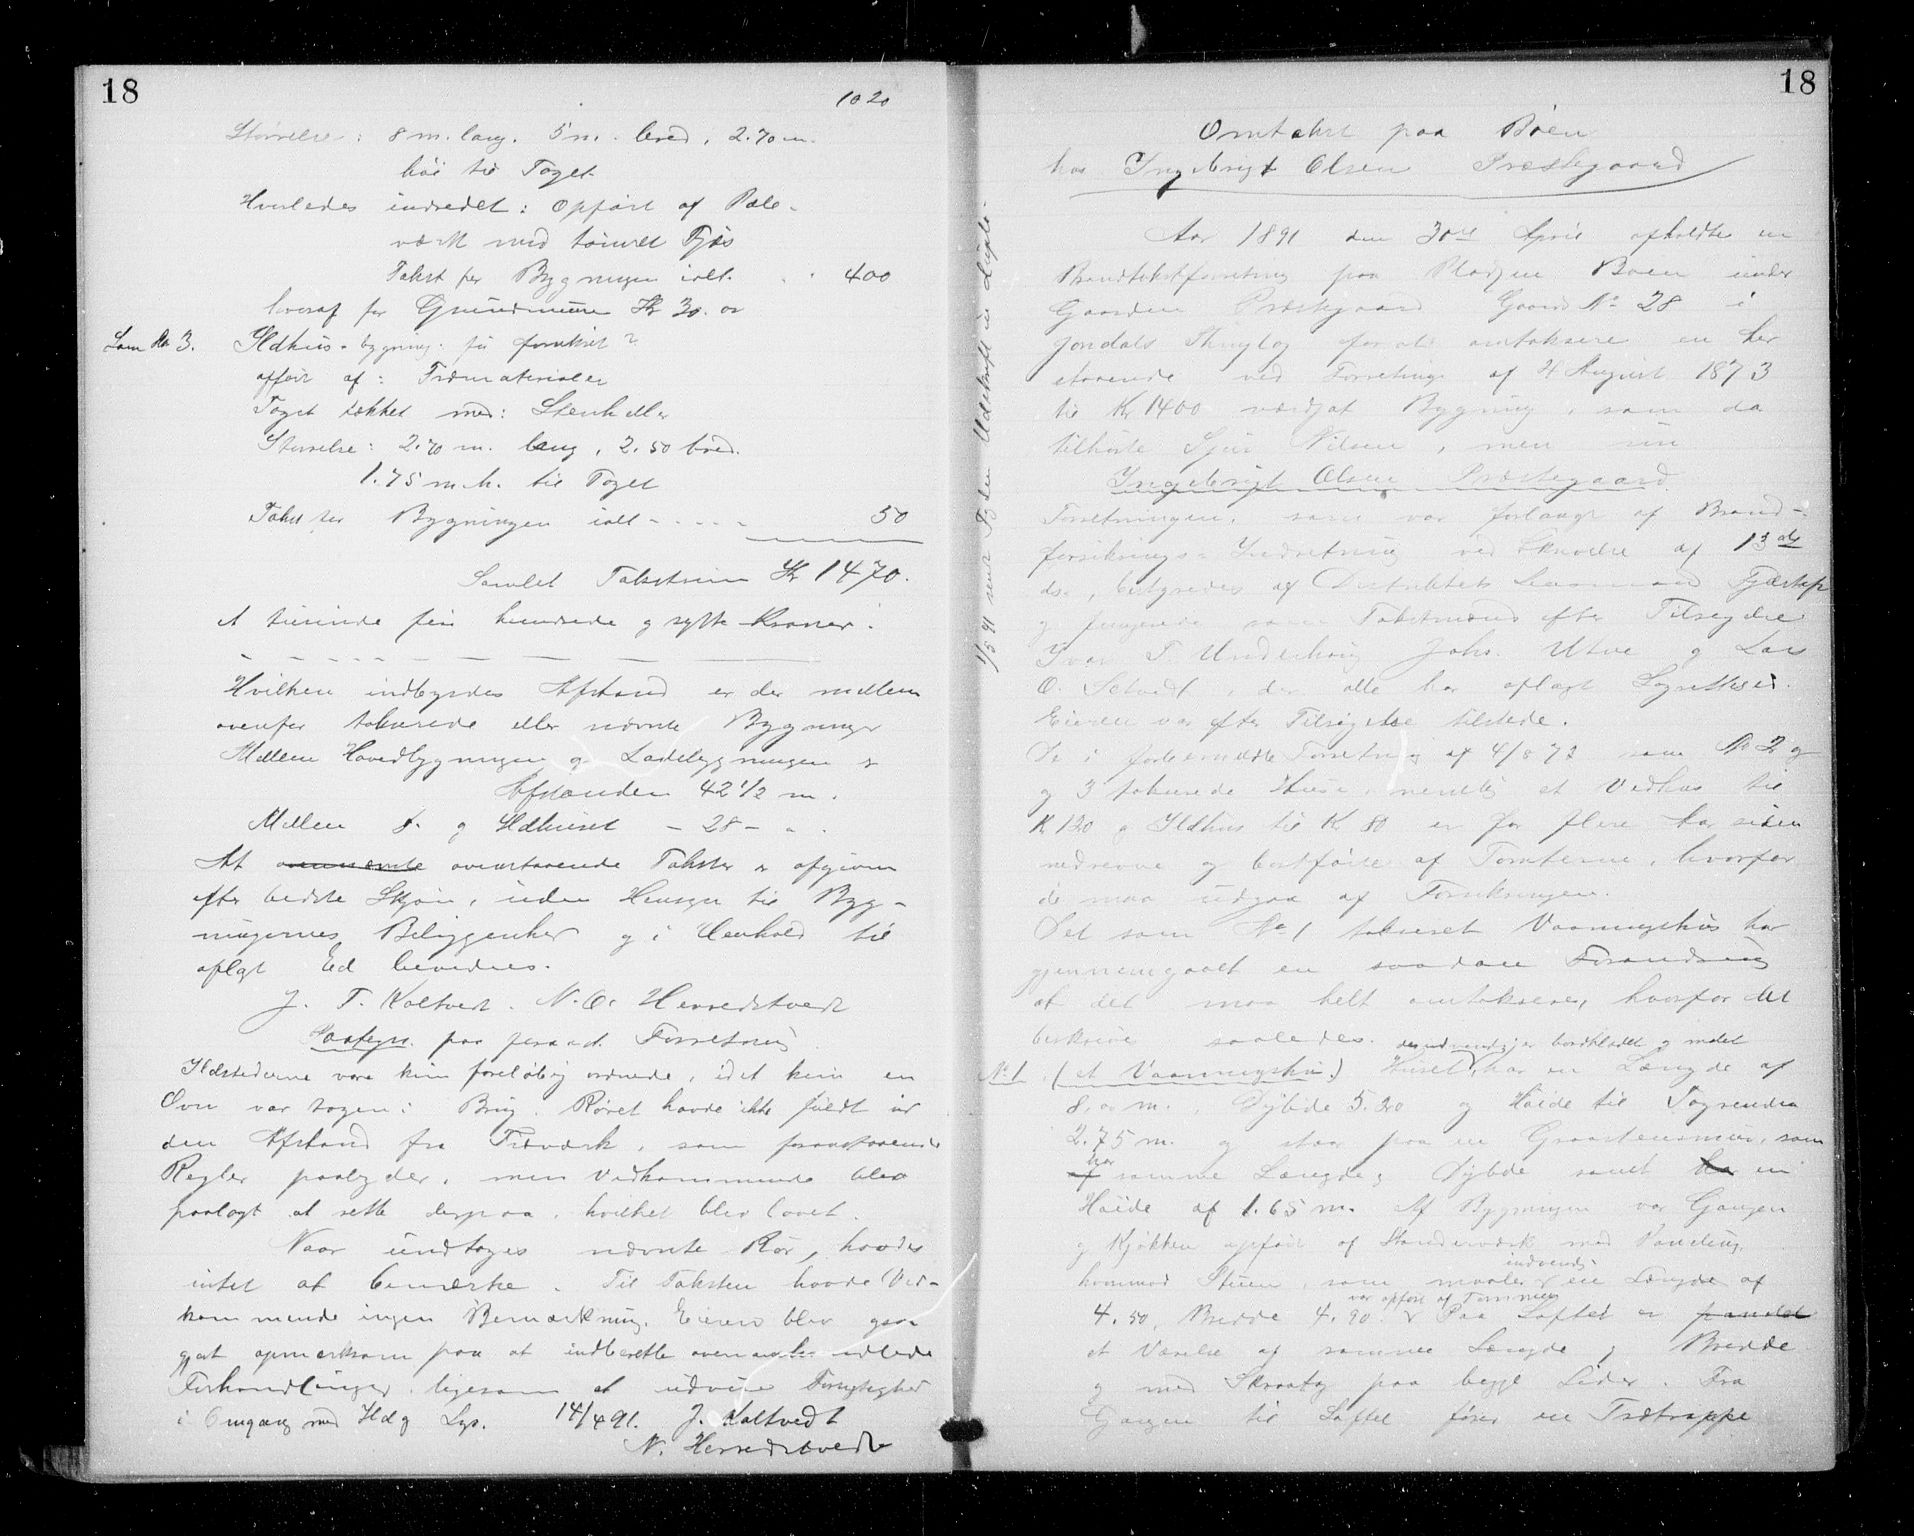 18
1020
Størrelse: 8 m. lang, 5 m. bred, 2.70 m.
høi til Taget
Hvorledes indredet: Opført af Pæle-
værk med tømret Fjøs
Takst per Bygningen ialt. . . 400
hvoraf for Grundmuren Kr 30.00
Som No 3. Ildhus-bygning. før forsikret?
opført af: Træmaterialer
Taget tækket med: Stenheller
Størrelse: 2.70 m. lang, 2.50 bred.
1.75 m. h. til Taget
Takst for Bygningen ialt - . . . - 50
Samlet Takstsum Kr 1470.
et tusinde fire hundrede og sytti Kroner.
Hvilken indbyrdes Afstand er der mellem
ovenfor takserede eller nævnte Bygninger
Mellem Hovedbygningen og Ladebygningen er
Afstanden 42 1/2 m.
Mellem d. og Ildhuset - 28 - " .
At ovennævnte ovenstaaende Takster er afgivne
efter bedste Skjøn, uden Hensyn til Byg-
ningernes Beliggenhed og i Henhold til
aflagt Ed bevidnes.
J. T. Koltvedt. N. O. Herredstvedt
Paategn. paa foranst. Forretning
Ildstederne vare kun foreløbig ordnede, idet kun en
Ovn var tagen i Brug. Røret havde ikke fuldt ud
den Afstand fra Træværk, som foranstaaende
Regler paabyder, men Vedkommende blev
paalagt at rette derpaa, hvilket blev lovet.
Naar undtages nævnte Rør, havdes
intet at bemærke. Til Taksten havde Ved-
kommende ingen Bemærkning. Eieren blev gjort
opmærksom paa at indberette
Forhandlinger ligesom at udvise Forsigtighed
i Omgang med Ild og Lys. 14/4 91. J. Koltvedt
N. Herredstvedt
18
Omtakst paa Bøen
hos Ingebrigt Olsen Præstegaard
Aar 1891 den 30te April afholdtes en
Brandtakstforretning paa Pladsen Bøen under
Gaarden Præstegaard Gaards No 28 i
Jondals Thinglag for at omtaksere en her
staaende ved Forretning af 4 August 1873
til Kr 1400 værdsat Bygning, som da
tilhørte Sjur Nilsen, men nu
Ingebrigt Olsen Præstegaard
Forretningen, som var forlangt af Brand-
forsikrings-Indretning ved Skrivelse af 13de
ds., bestyredes af Distriktets Lensmand
og fungerede som Takstmænd efter Tilsigelse
Ivar T. Underhaug Johs. Utve og Lars
O. Selvedt, der alle har aflagt Lagretsed.
Eieren var efter Tilsigelse tilstede.
De i forbemeldte Forretning af 4/8 73 som No 2 og
og 3 takserede Huse, nemlig et Vedhus til
Kr 120 og Ildhus til Kr 80 er for flere Aar siden
nedrevne og bortførte af Tomterne, hvorfor
de maa udgaa af Forsikringen.
Det som No 1 takseret Vaaningshus har
gjennemgaaet en saadan Forandring
at det maa helt omtakseres, hvorfor det
beskrives saaledes.
der udvendig er bordklædet og malet
No 1. (et Vaaningshus.) Huset, har en Længde af
8.00 m., Dybde 5.20 og Høide til Tagrenden
2.75 m. og staar paa en Graastensmur, som
har
af samme Længde og Dybde samt har en
Høide af 1.65 m. Af Bygningen var Gangen
og Kjøkken opført af Standerværk med Paneling,
indvendig
hvormod Stuen, som maaler en Længde af
var opført af Tømmer
4.50, Bredde 4.90. Paa Loftet er panelet
et Værelse af samme Længde og Bredde
og med Skraatag paa begge Sider. Fra
Gangen til Loftet fører en Trætrappe
1/5 91 sendt Udskrift